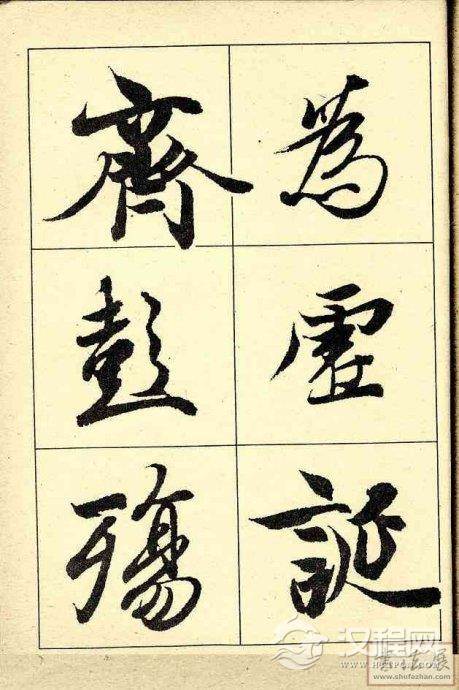 為虛誕
齊彭殤
汉程网
HTTPCN.COM
www.shufazhan.com